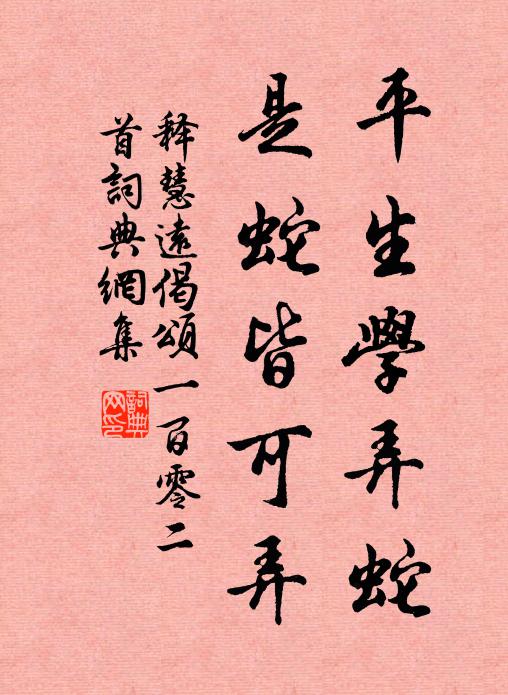 平生學弄蛇
是蛇皆可弄
释慧遠偈頌一百零二
首詞典網集
詞典网印